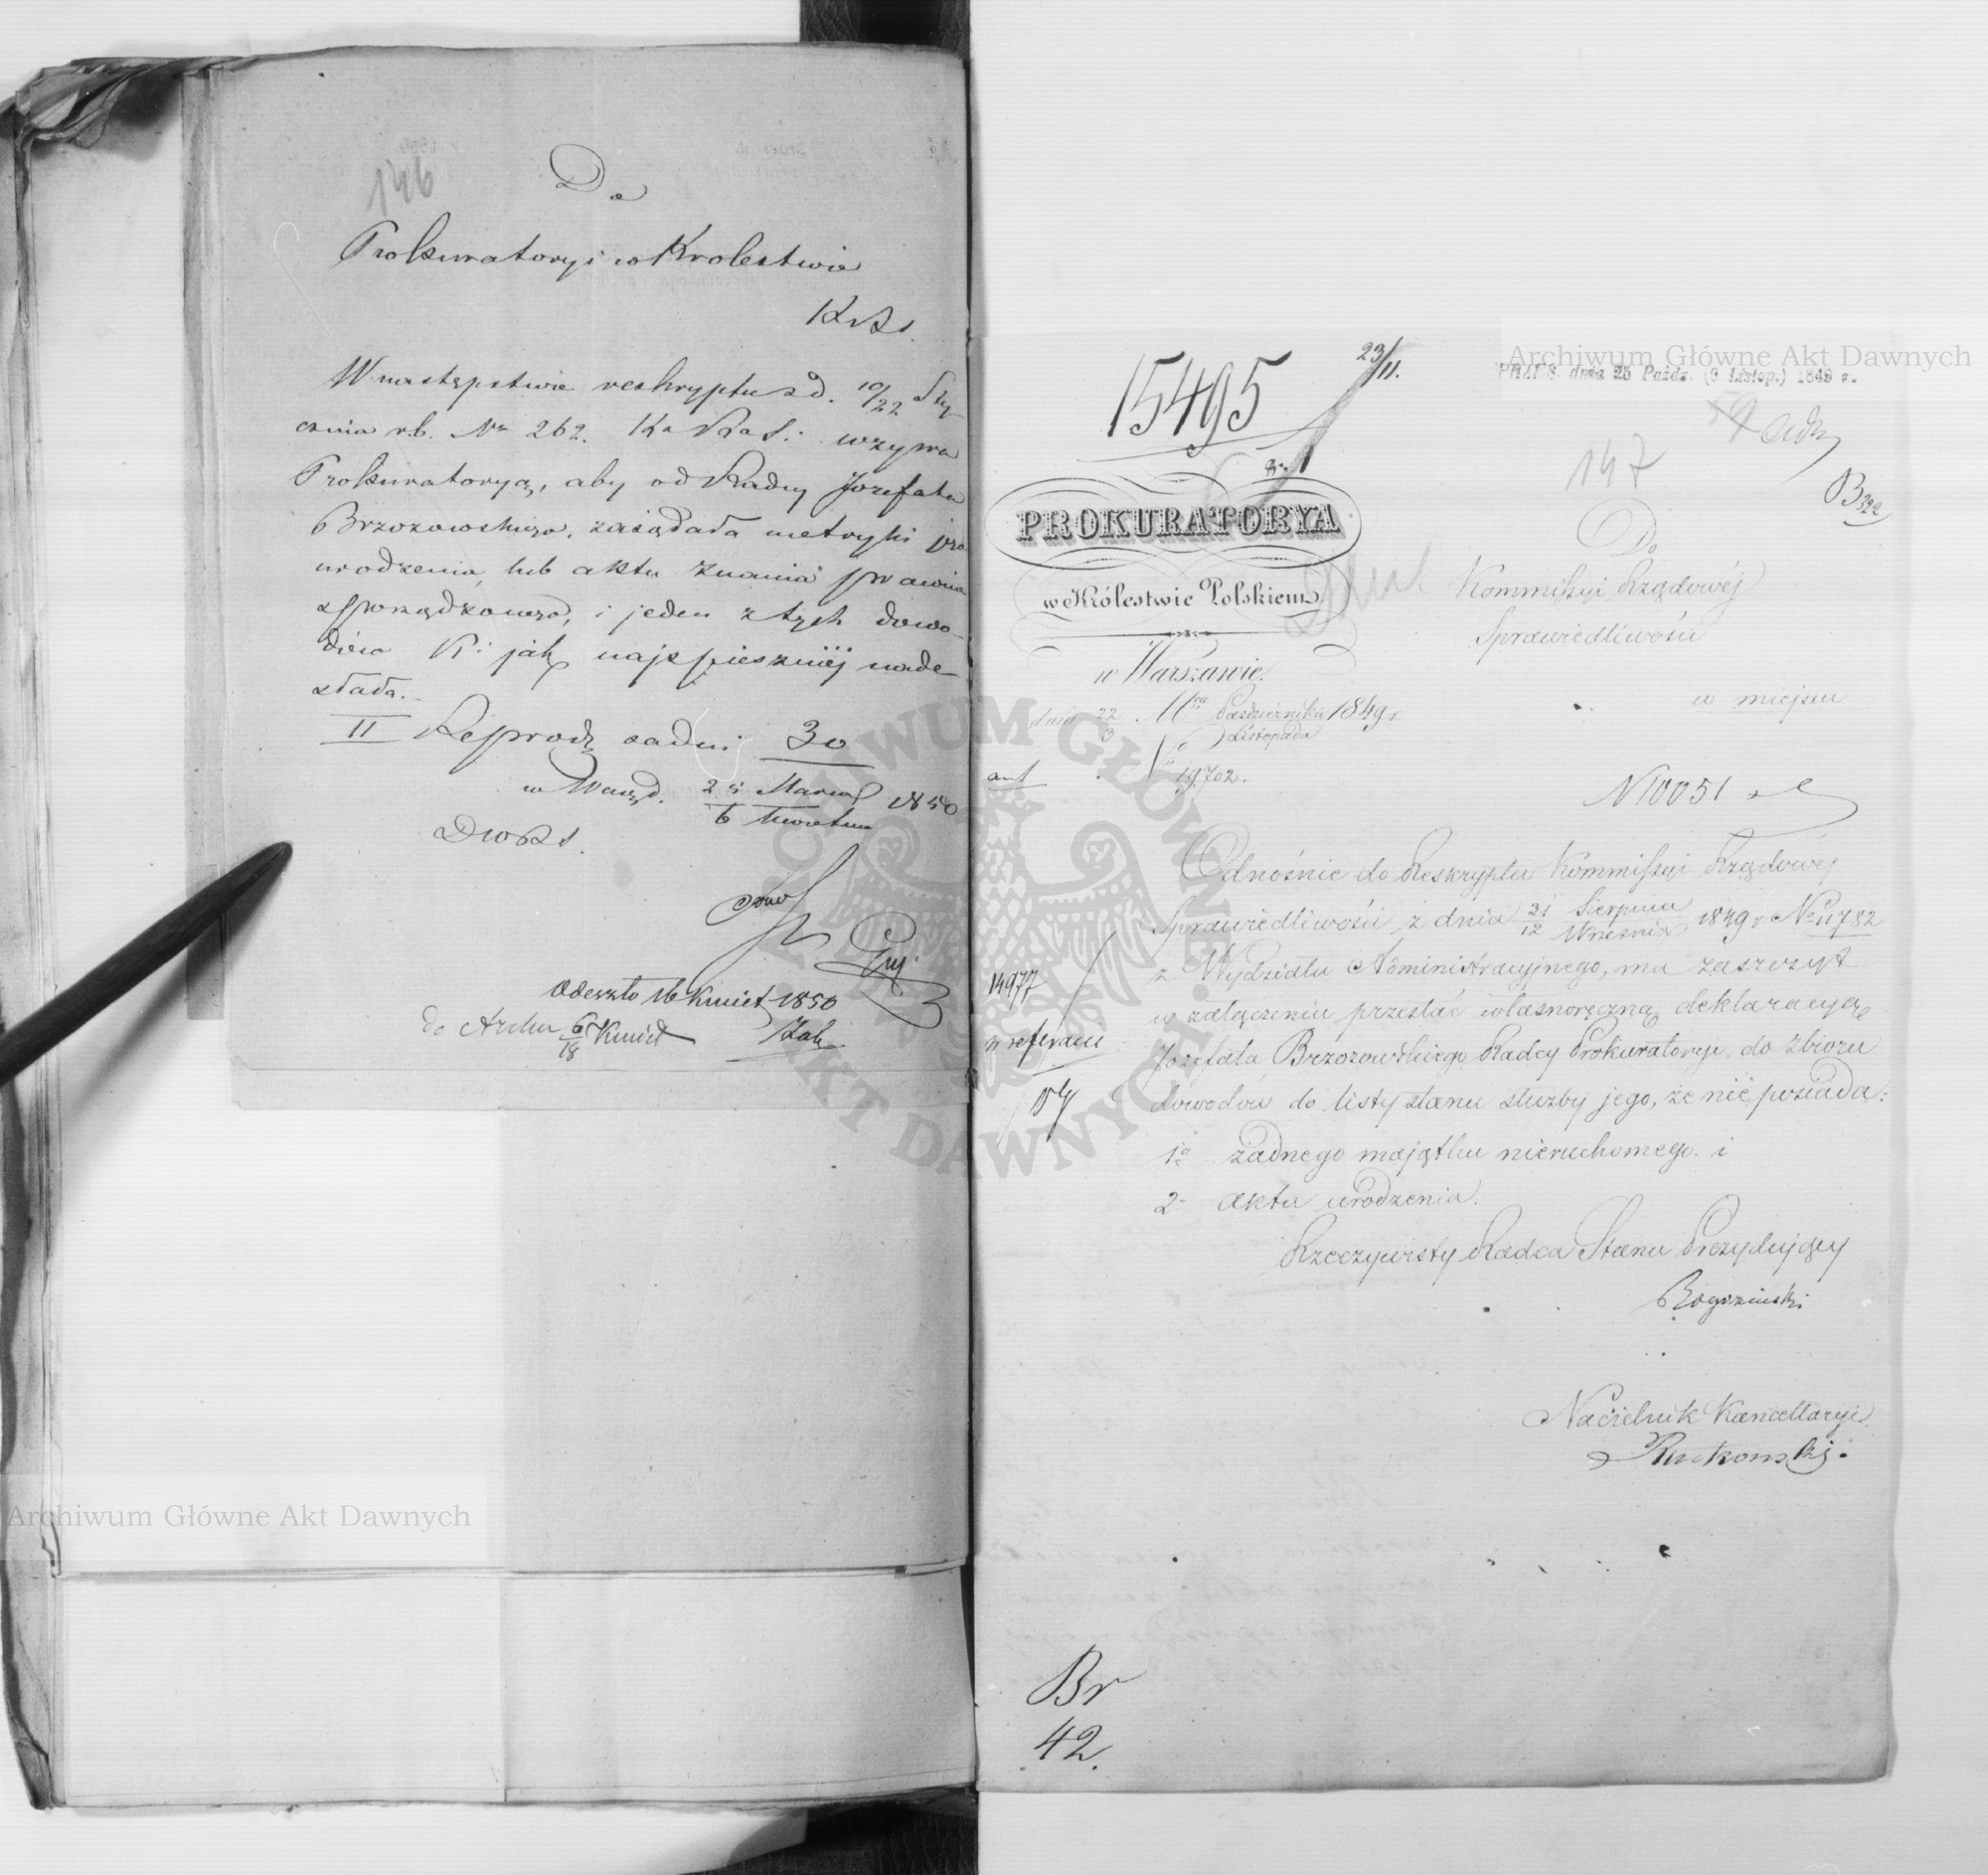 146
Do
Prokuratoryi w Krolestwie
W następstwie reskryptu z d. 10/22 Sty-
cznia r.b. Nr 262. wzywa
Prokuratoryą, aby od Radcy Jozefata
Brzozowskiego, zażądała metryki jego
urodzenia, lub aktu znania prawnie
sporządzonego, i jeden z tych dowo-
dów K: jak najspieszniéj nade-
słała.
II Reprod. za dni 30
w Warsz. d. 25 Marca 1850
6 Kwietnia
Odeszło 16 Kwiet 1850
do Archu 6/18 Kwiet
15495
23/11.
dnia 25 Paźdz. (6 Listop.) 1849 r.
147
B 322
PROKURATORYA
w Królestwie Polskiem
w Warszawie.
dnia 22/3 Października/Listopada 1849 r.
19702.
Do
Kommissyi Rządowéj
Sprawiedliwości
w miejscu
N 10051
Odnośnie do Reskryptu Kommissyi Rządowéj
Sprawiedliwości z dnia 31/12 Sierpnia/Września 1849 r No 11782
z Wydziału Administracyjnego, ma zaszczyt
w załączeniu przesłać własnoręczną deklaracyą
Jozefata Brzozowskiego Radcy Prokuratoryi, do zbioru
dowodów do listy stanu służby jego, że nie posiada:
1o żadnego majątku nieruchomego. i
2o aktu urodzenia.
Rzeczywisty Radca Stanu Prezydujący
14977
w referacie
Naczelnik Kancellaryi
Br
42.
Archiwum Główne Akt Dawnych
Archiwum Główne Akt Dawnych
ARCHIWUM GŁÓWNE AKT DAWNYCH